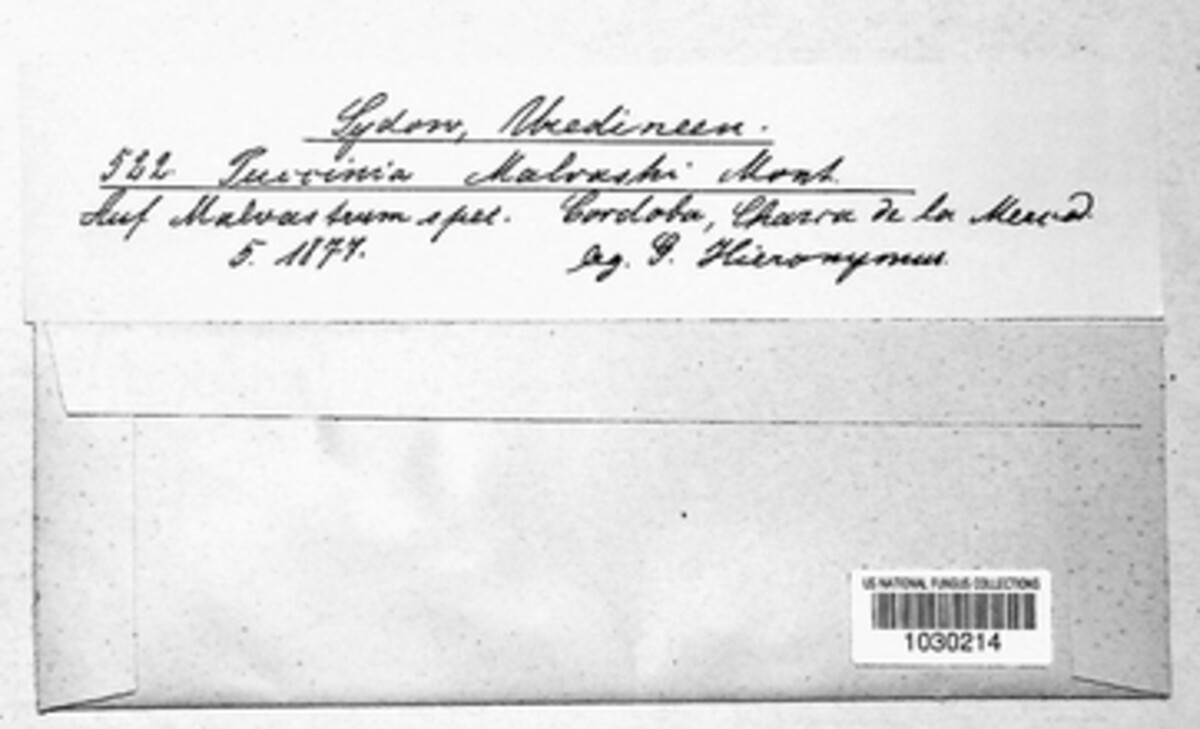 Sydow, Uredineen.
522. Puccinia Malvashi Mont.
Auf Malvastrum spec. Cordoba, Chacra de la Merced.
5. 1877. leg. G. Hieronymus.
US NATIONAL FUNGUS COLLECTIONS
1030214